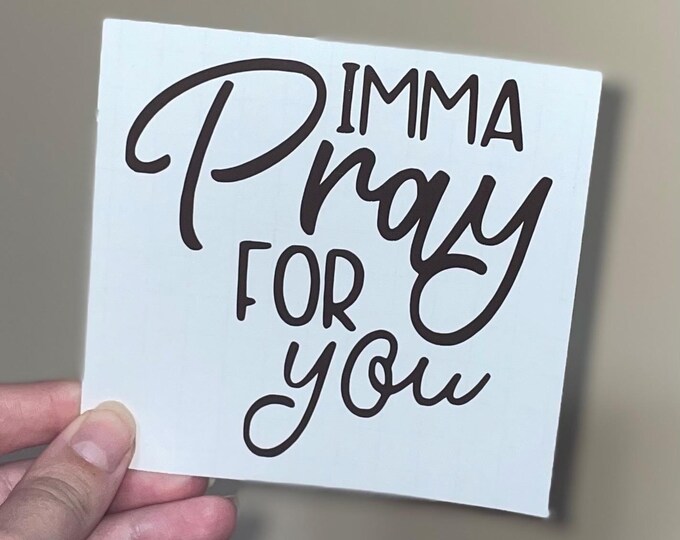 IMMA
Pray
FOR
you